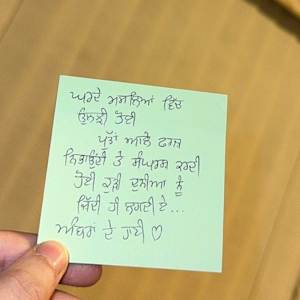 ਘਰਦੇ ਮਸਲਿਆਂ ਵਿੱਚ
ਉਲਝੀ ਹੋਈ
ਪੁੱਤਾਂ ਆਲੇ ਫਰਜ਼
ਨਿਭਾਉਂਦੀ ਤੇ ਸੰਘਰਸ਼ ਕਰਦੀ
ਹੋਈ ਕੁੜੀ ਦੁਨੀਆ ਨੂੰ
ਜ਼ਿੱਦੀ ਹੀ ਲਗਦੀ ਏ...
ਅੰਬਰਾਂ ਦੇ ਹਾਣੀ ♡